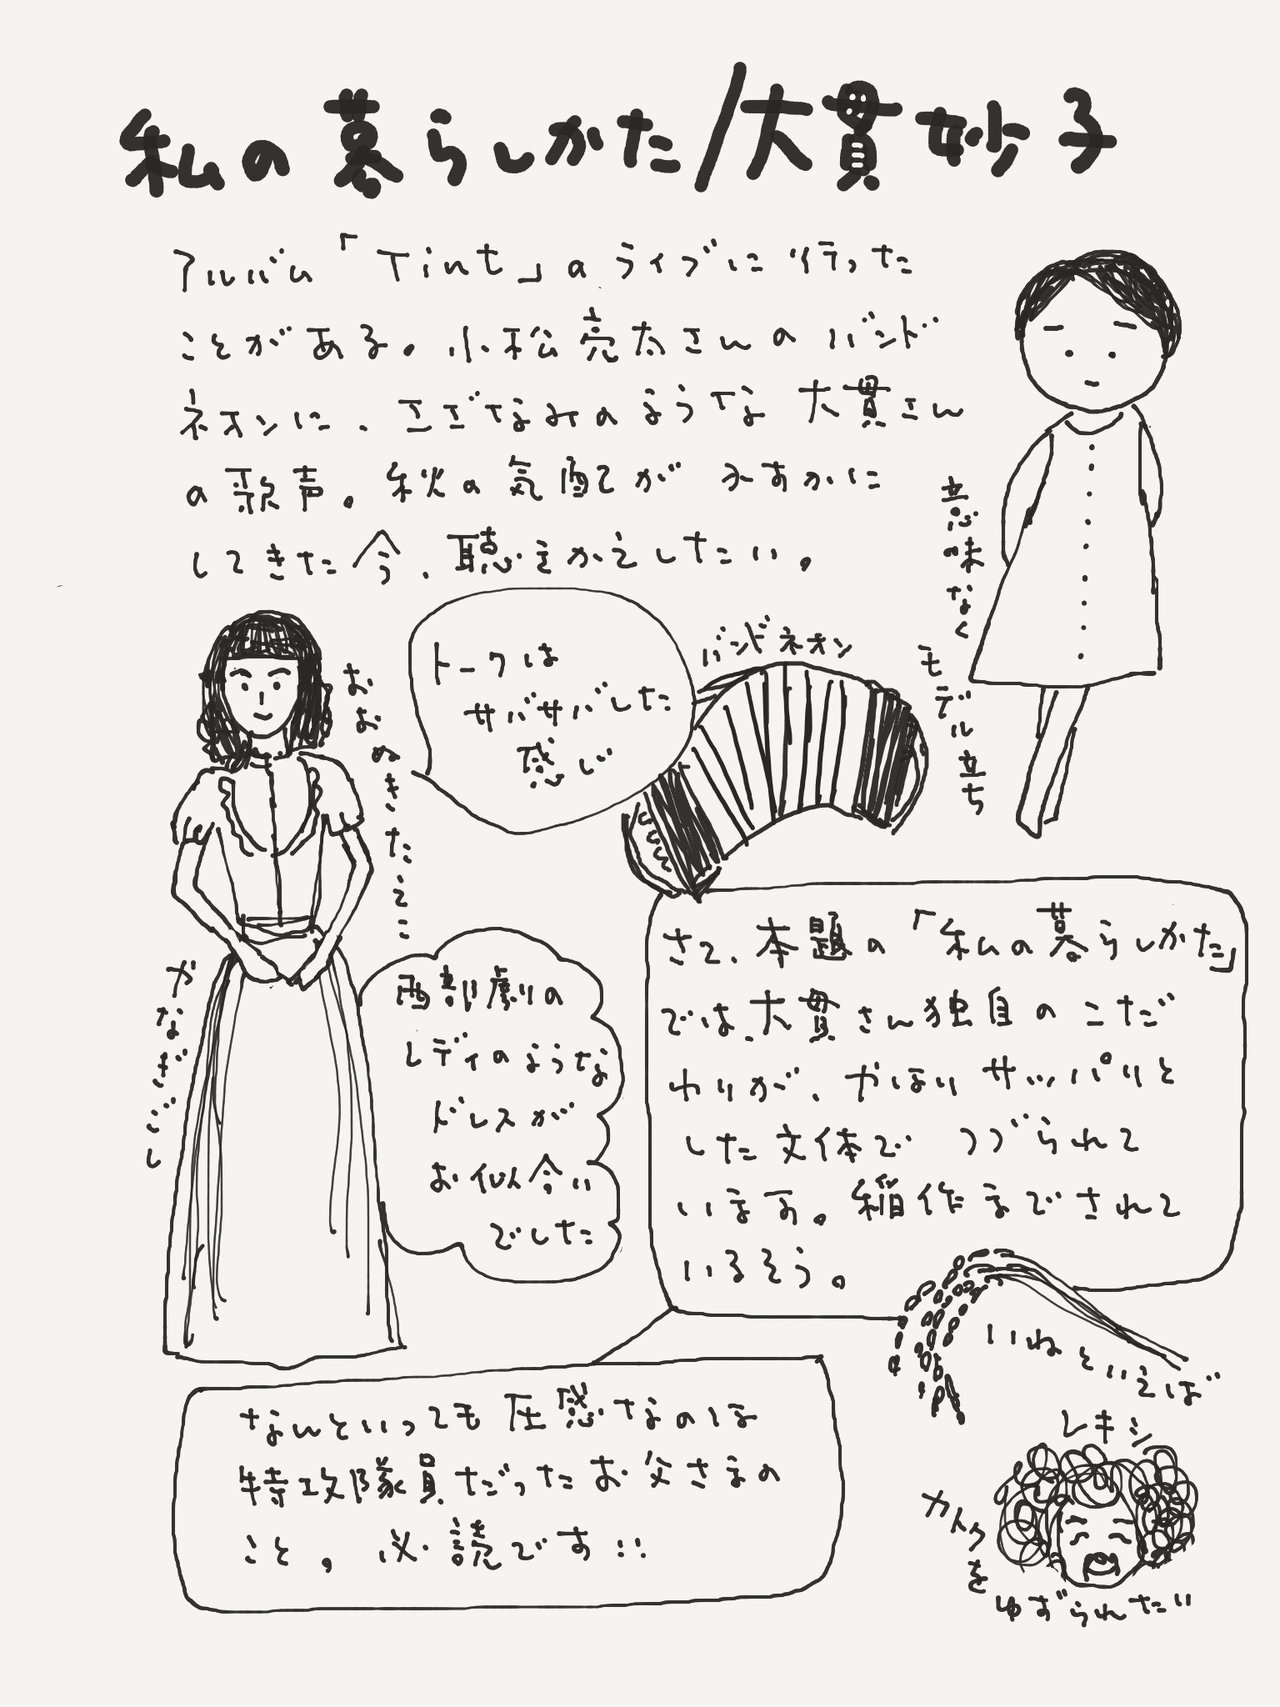 私の暮らしかた/大貫妙子
アルバム「Tint」のライブに行った
ことがある。小松亮太さんのバンド
ネオンに、さざなみのような大貫さん
の歌声。秋の気配がかすかに
してきた今、聴きかえしたい。
意味なく
モデル立ち
トークは
サバサバした
感じ
バンドネオン
おおぬきたえこ
やなぎごし
西部劇の
レディのような
ドレスが
お似合い
でした
さて、本題の「私の暮らしかた」
では、大貫さん独自のこだ
わりが、やはりサッパリと
した文体でつづられて
います。稲作までされて
いるそう。
いねといえば
レキシ
カトクを
ゆずられたい
なんといっても圧巻なのは
特攻隊員だったお父さまの
こと。必読です!!